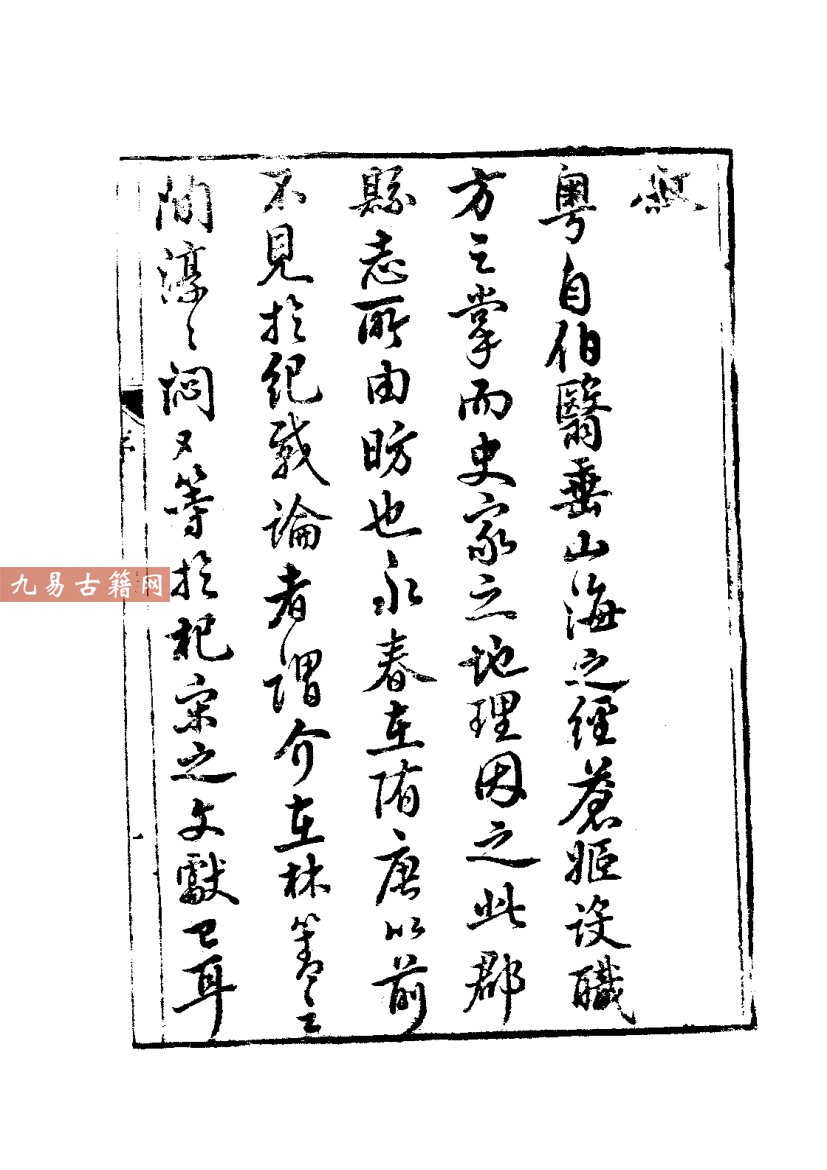 叙
粵自伯翳垂山海之經蒼姬設職
方之掌而史家之地理因之此郡
縣志所由昉也永春在隋唐以前
不見於紀載論者謂介在林箐之
間淳〻悶〻等於杞宋之文獻已耳
九易古籍网